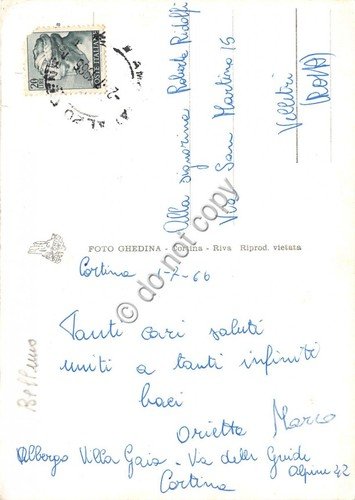 20
POSTE ITALIANE
Alla Signorina Roberta Ridolfi
Via San Martino 15
Velletri
(ROMA)
FOTO GHEDINA - Cortina - Riva Riprod. vietata
Cortina 1-7-66
Tanti cari saluti
uniti a tanti infiniti
baci
Orietta Marco
Albergo Villa Gaia - Via delle Guide
Alpine 42
Cortina
Belluno
do not copy